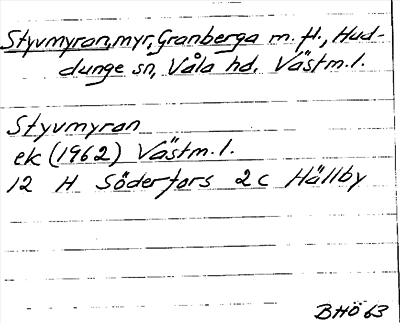 Styvmyran, myr, Granberga m. fl., Hud-
dunge sn, Våla hd. Västm.l.
Styvmyran
ek (1962) Västm.l.
12 H Söderfors 2c Hällby
BHÖ 63